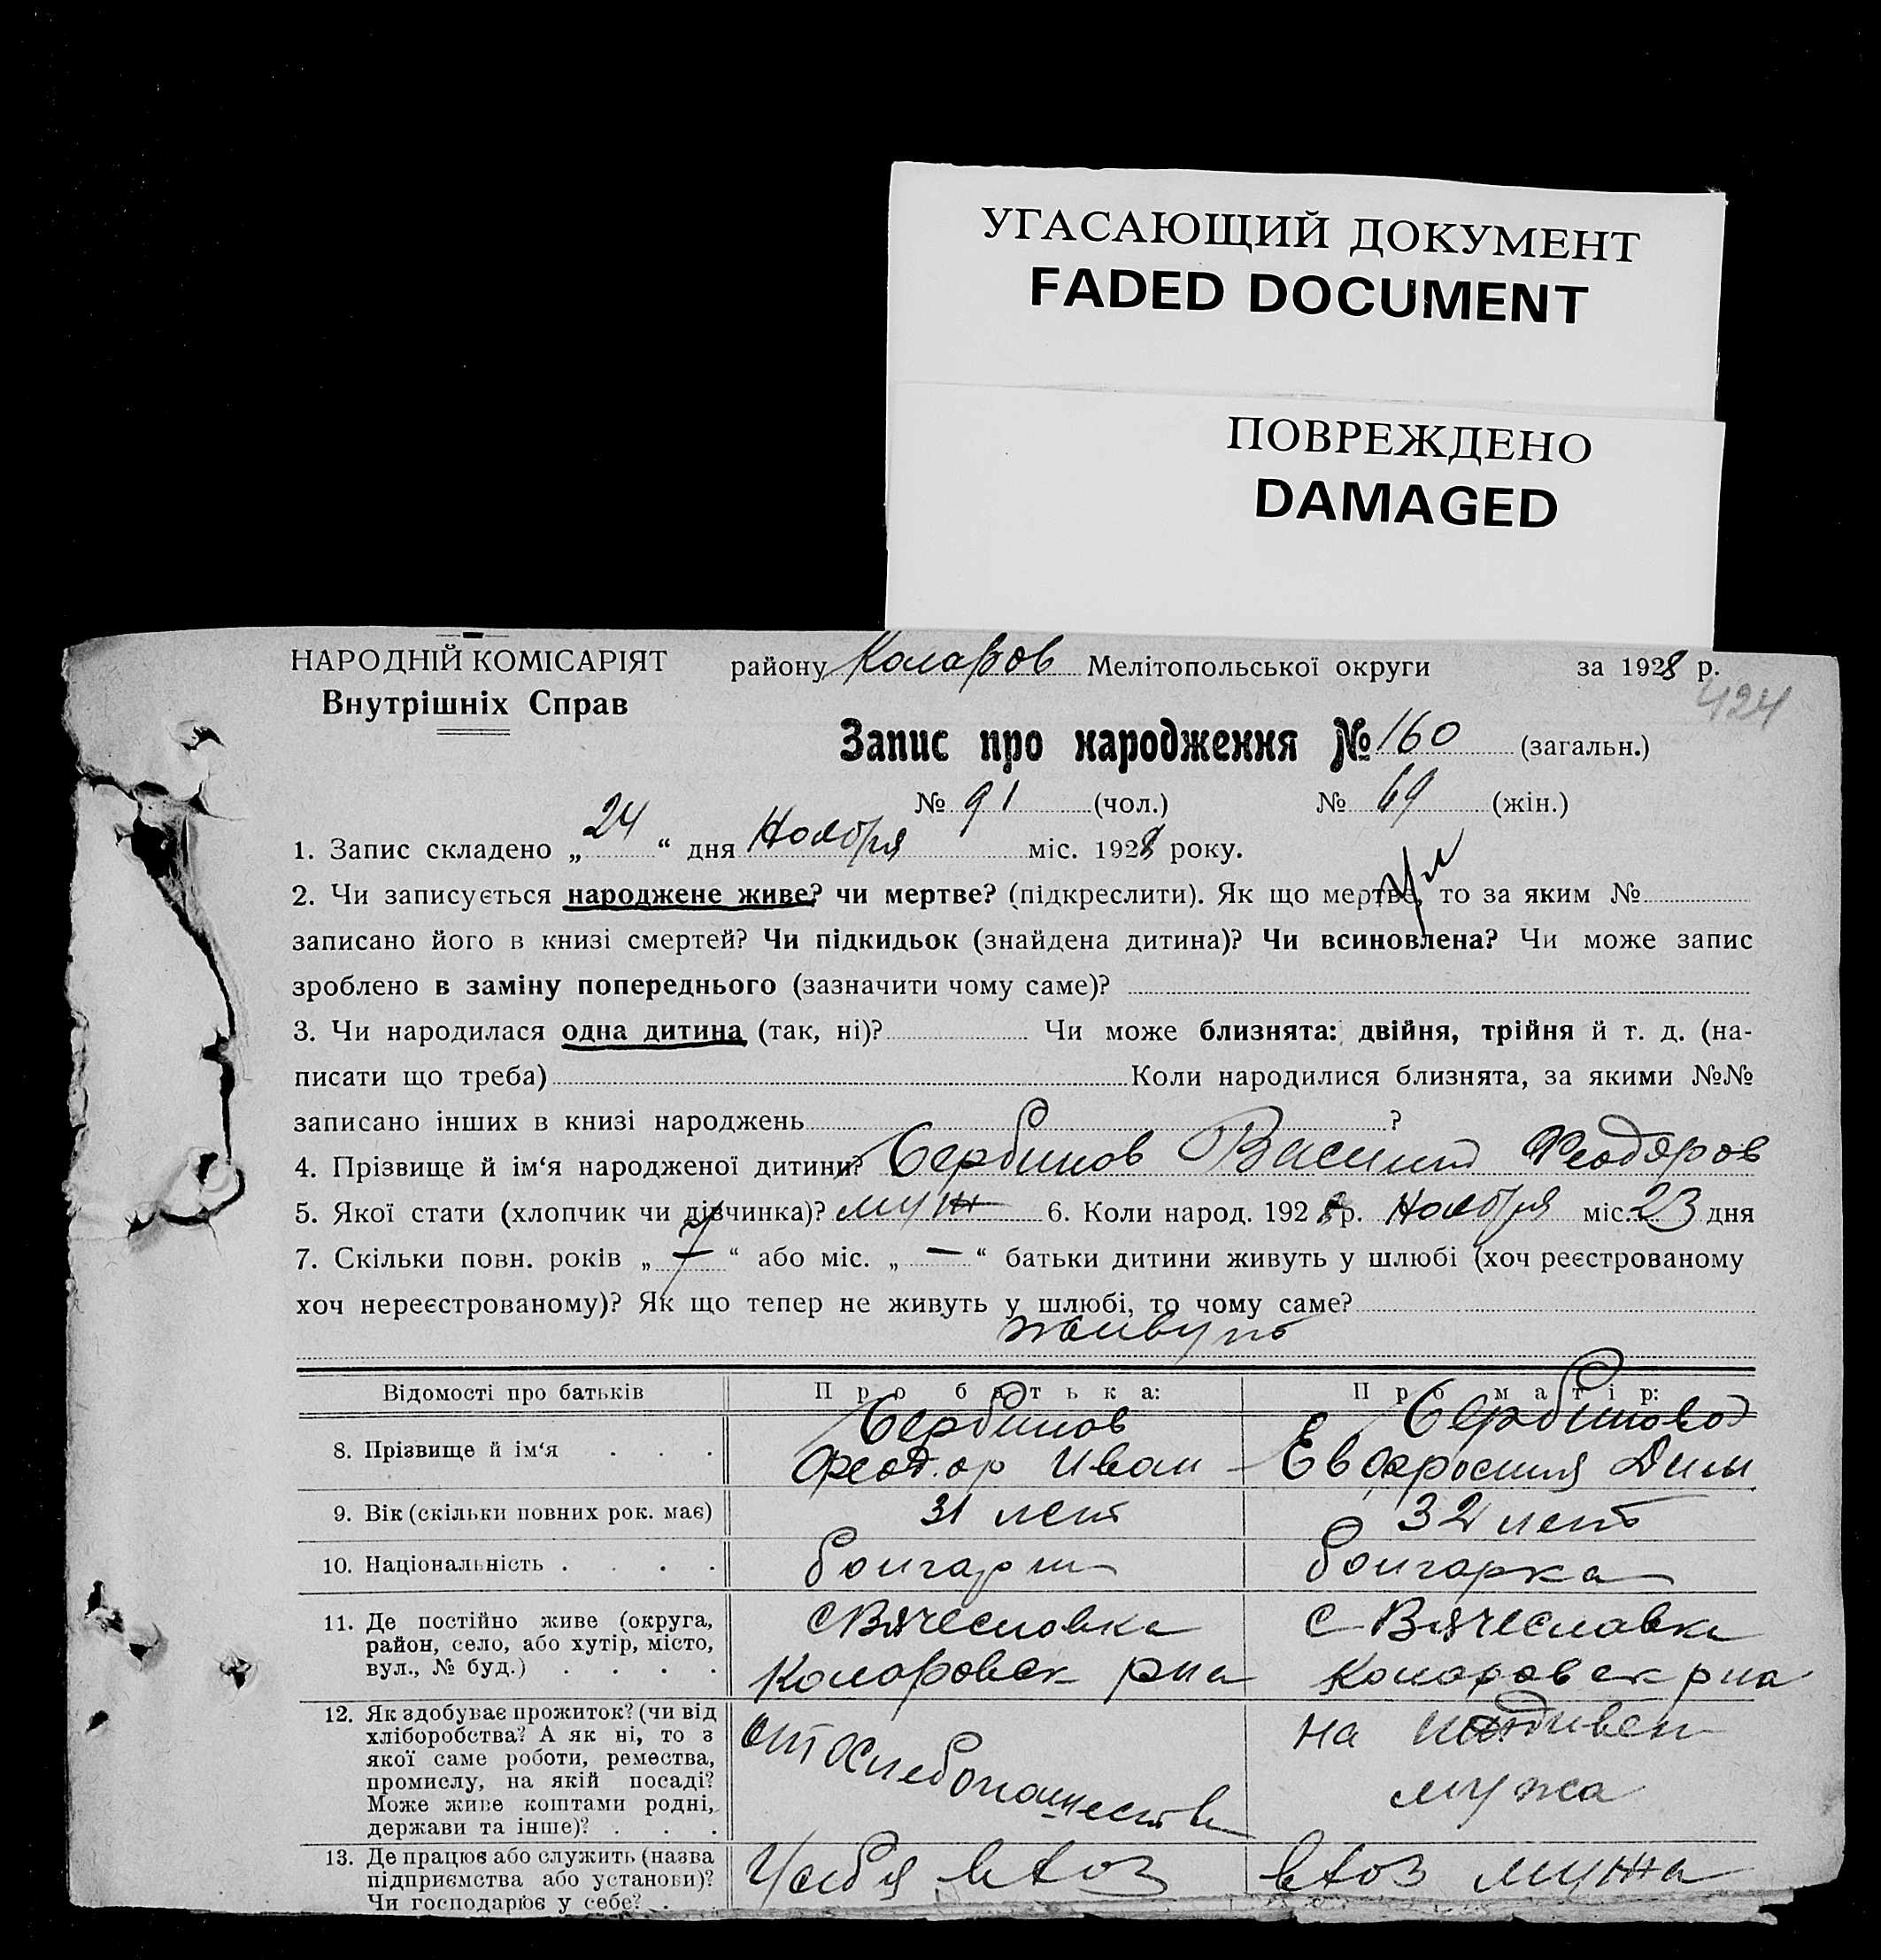 УГАСАЮЩИЙ ДОКУМЕНТ
FADED DOCUMENT
ПОВРЕЖДЕНО
DAMAGED
НАРОДНІЙ КОМІСАРІЯТ району Коларов Мелітопольської округи за 1928 р.
Внутрішніх Справ
424
Запис про народження № 160 (загальн.)
№ 91 (чол.) № 69 (жін.)
1. Запис складено „ 24 “ дня Ноября міс. 1928 року.
2. Чи записується народжене живе? чи мертве? (підкреслити). Як що мертве, то за яким №
записано його в книзі смертей? Чи підкидьок (знайдена дитина)? Чи всиновлена? Чи може запис
зроблено в заміну попереднього (зазначити чому саме)?
3. Чи народилася одна дитина (так, ні)? Чи може близнята: двійня, трійня й т. д. (на-
писати що треба) Коли народилися близнята, за якими №№
записано інших в книзі народжень ?
4. Прізвище й ім‘я народженої дитини? Сербинов Василий Феодоров
5. Якої стати (хлопчик чи дівчинка)? муж 6. Коли народ. 1928 р. Ноября міс. 23 дня
7. Скільки повн. років „ 7 “ або міс. „ — “ батьки дитини живуть у шлюбі (хоч реєстрованому
хоч нереєстрованому)? Як що тепер не живуть у шлюбі, то чому саме?
живуть
Відомості про батьків Про батька: Про матір:
8. Прізвище й ім‘я . . . Сербинов Сербинова
Феодор Иван Евфросиия Дим
9. Вік (скільки повних рок. має) 31 лет 32 лет
10. Національність . . . . болгарин болгарка
11. Де постійно живе (округа, с Вячесловка с Вячеславка
район, село, або хутір, місто,
вул., № буд.) . . . . Коларовск рна Коларовск рна
12. Як здобуває прожиток? (чи від на иждивен
хліборобства? А як ні, то з от хлебопашества
якої саме роботи, ремества,
промислу, на якій посаді? мужа
Може живе коштами родні,
держави та інше)? . . .
13. Де працює або служить (назва
підприємства або установи)? мужа
Чи господарює у себе? .